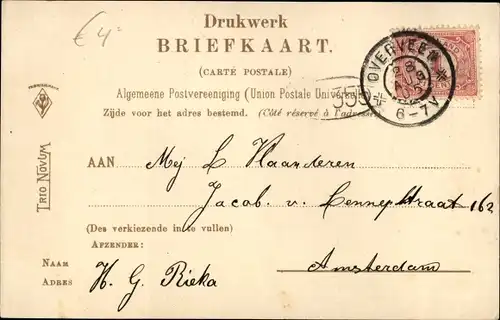 € 4-
Drukwerk
BRIEFKAART.
(CARTE POSTALE)
Algemeene Postvereeniging (Union Postale Universelle)
Zijde voor het adres bestemd. (Côté réservé à l'adresse)
OVERVEEN
6-7V
355
TRIO NOVUM
AAN Mej L Vlaanderen
Jacob. v. Lennepstraat 162
(Des verkiezende in te vullen)
AFZENDER:
Amsterdam
NAAM
ADRES H. G. Rieka